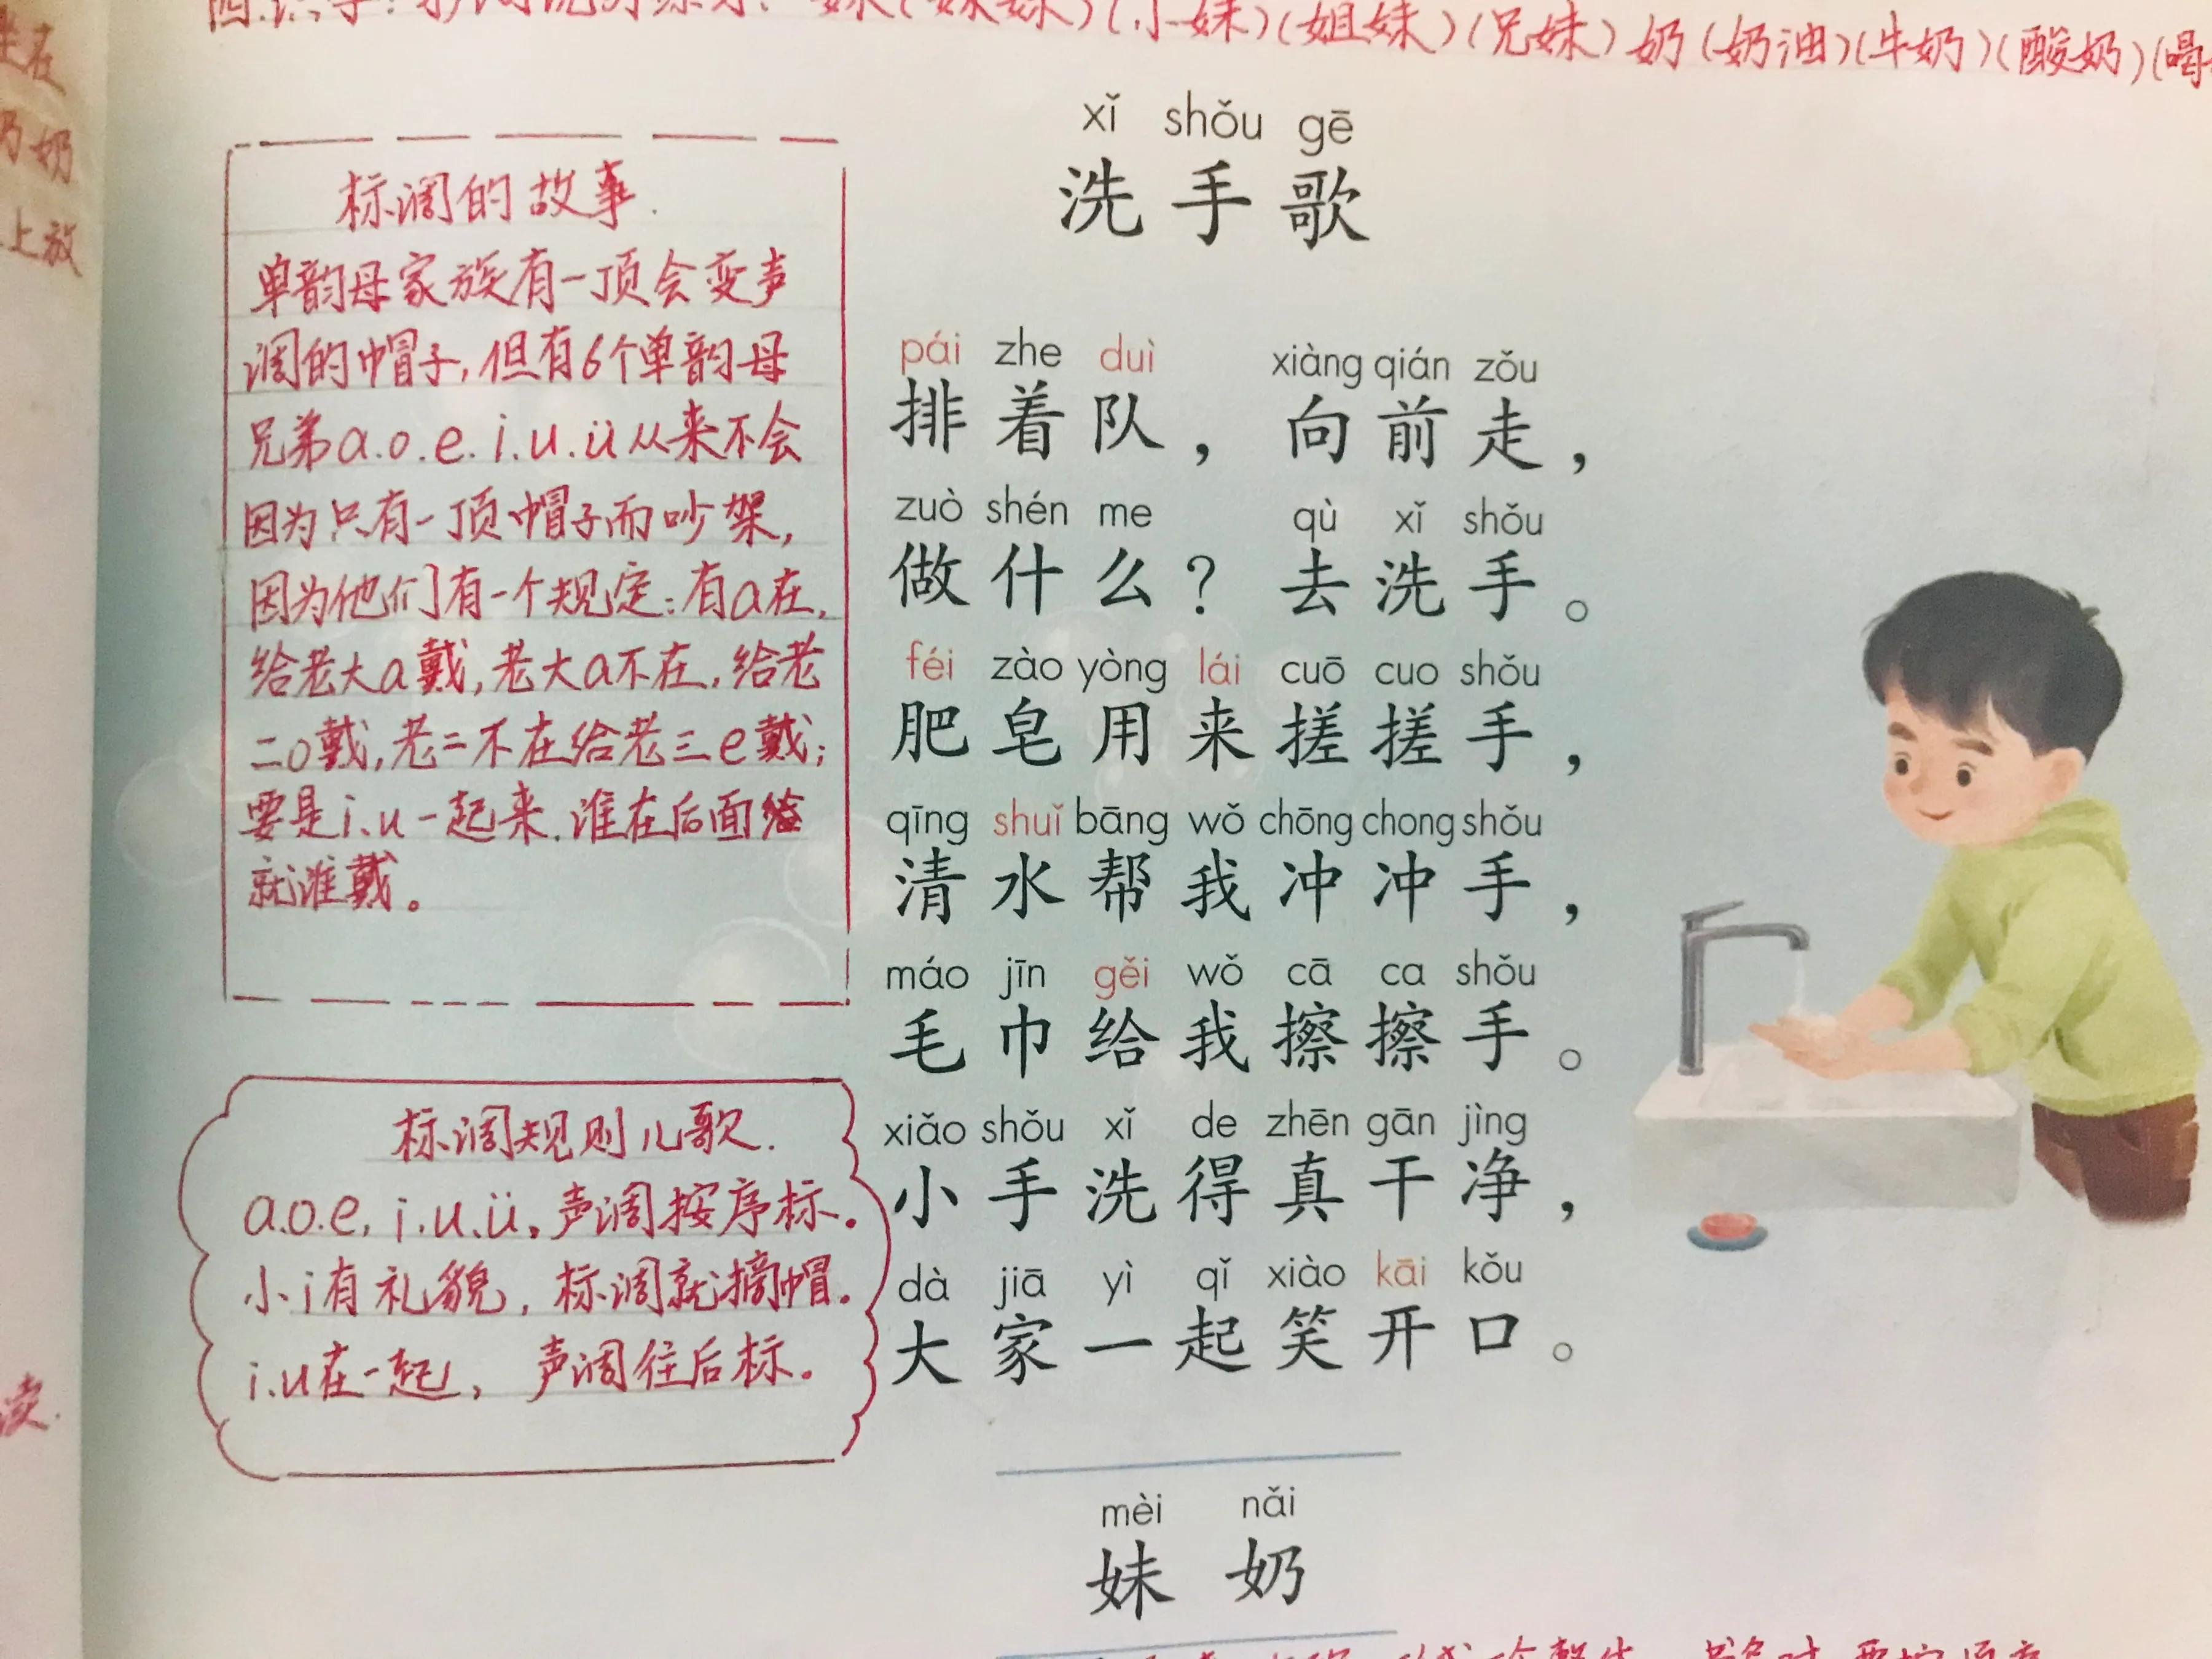 妹(妹妹)(小妹)(姐妹)(兄妹)奶(奶油)(牛奶)(酸奶)(喝
xǐ shǒu gē
洗手歌
标调的故事.
单韵母家族有一顶会变声
调的帽子,但有6个单韵母
兄弟a.o.e.i.u.ü从来不会
因为只有一顶帽子而吵架,
因为他们有一个规定:有a在,
给老大a戴,老大a不在,给老
二o戴,老二不在给老三e戴;
要是i.u一起来.谁在后面给
就谁戴。
标调规则儿歌.
a.o.e,i.u.ü。声调按序标。
小i有礼貌,标调就摘帽。
i.u在一起,声调往后标。
pái zhe duì xiàng qián zǒu
排着队，向前走，
zuò shén me qù xǐ shǒu
做什么？去洗手。
féi zào yòng lái cuō cuo shǒu
肥皂用来搓搓手，
qīng shuǐ bāng wǒ chōng chong shǒu
清水帮我冲冲手，
máo jīn gěi wǒ cā ca shǒu
毛巾给我擦擦手。
xiǎo shǒu xǐ de zhēn gān jìng
小手洗得真干净，
dà jiā yì qǐ xiào kāi kǒu
大家一起笑开口。
mèi nǎi
妹奶
奶
上放
读.